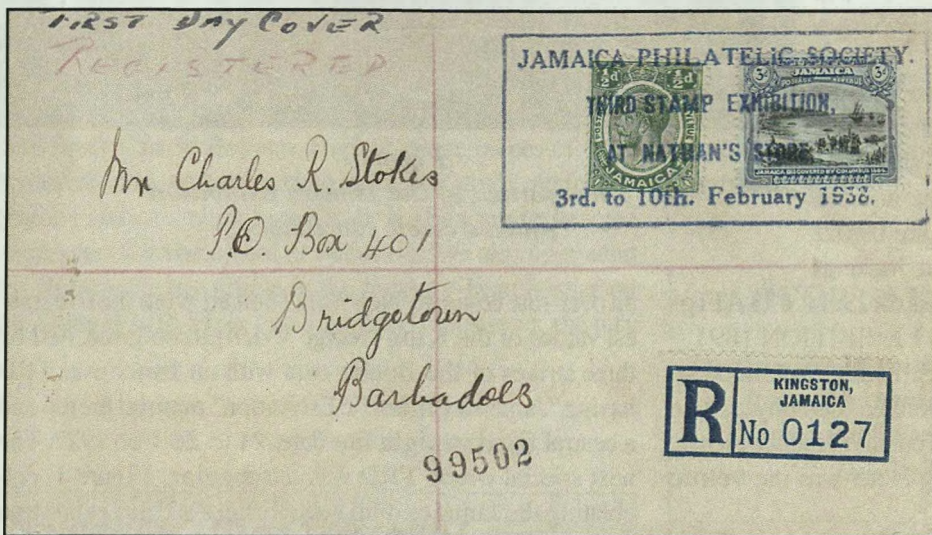 FIRST DAY COVER
REGISTERED
JAMAICA PHILATELIC SOCIETY.
THIRD STAMP EXHIBITION,
AT NATHAN'S STORE
3rd. to 10th. February 1938.
½d ½d
POSTAGE REVENUE
JAMAICA
3d JAMAICA 3d
POSTAGE REVENUE
JAMAICA DISCOVERED BY COLUMBUS 1494
Mr Charles R. Stokes
P.O. Box 401
Bridgetown
Barbadoes
99502
R
KINGSTON,
JAMAICA
No 0127